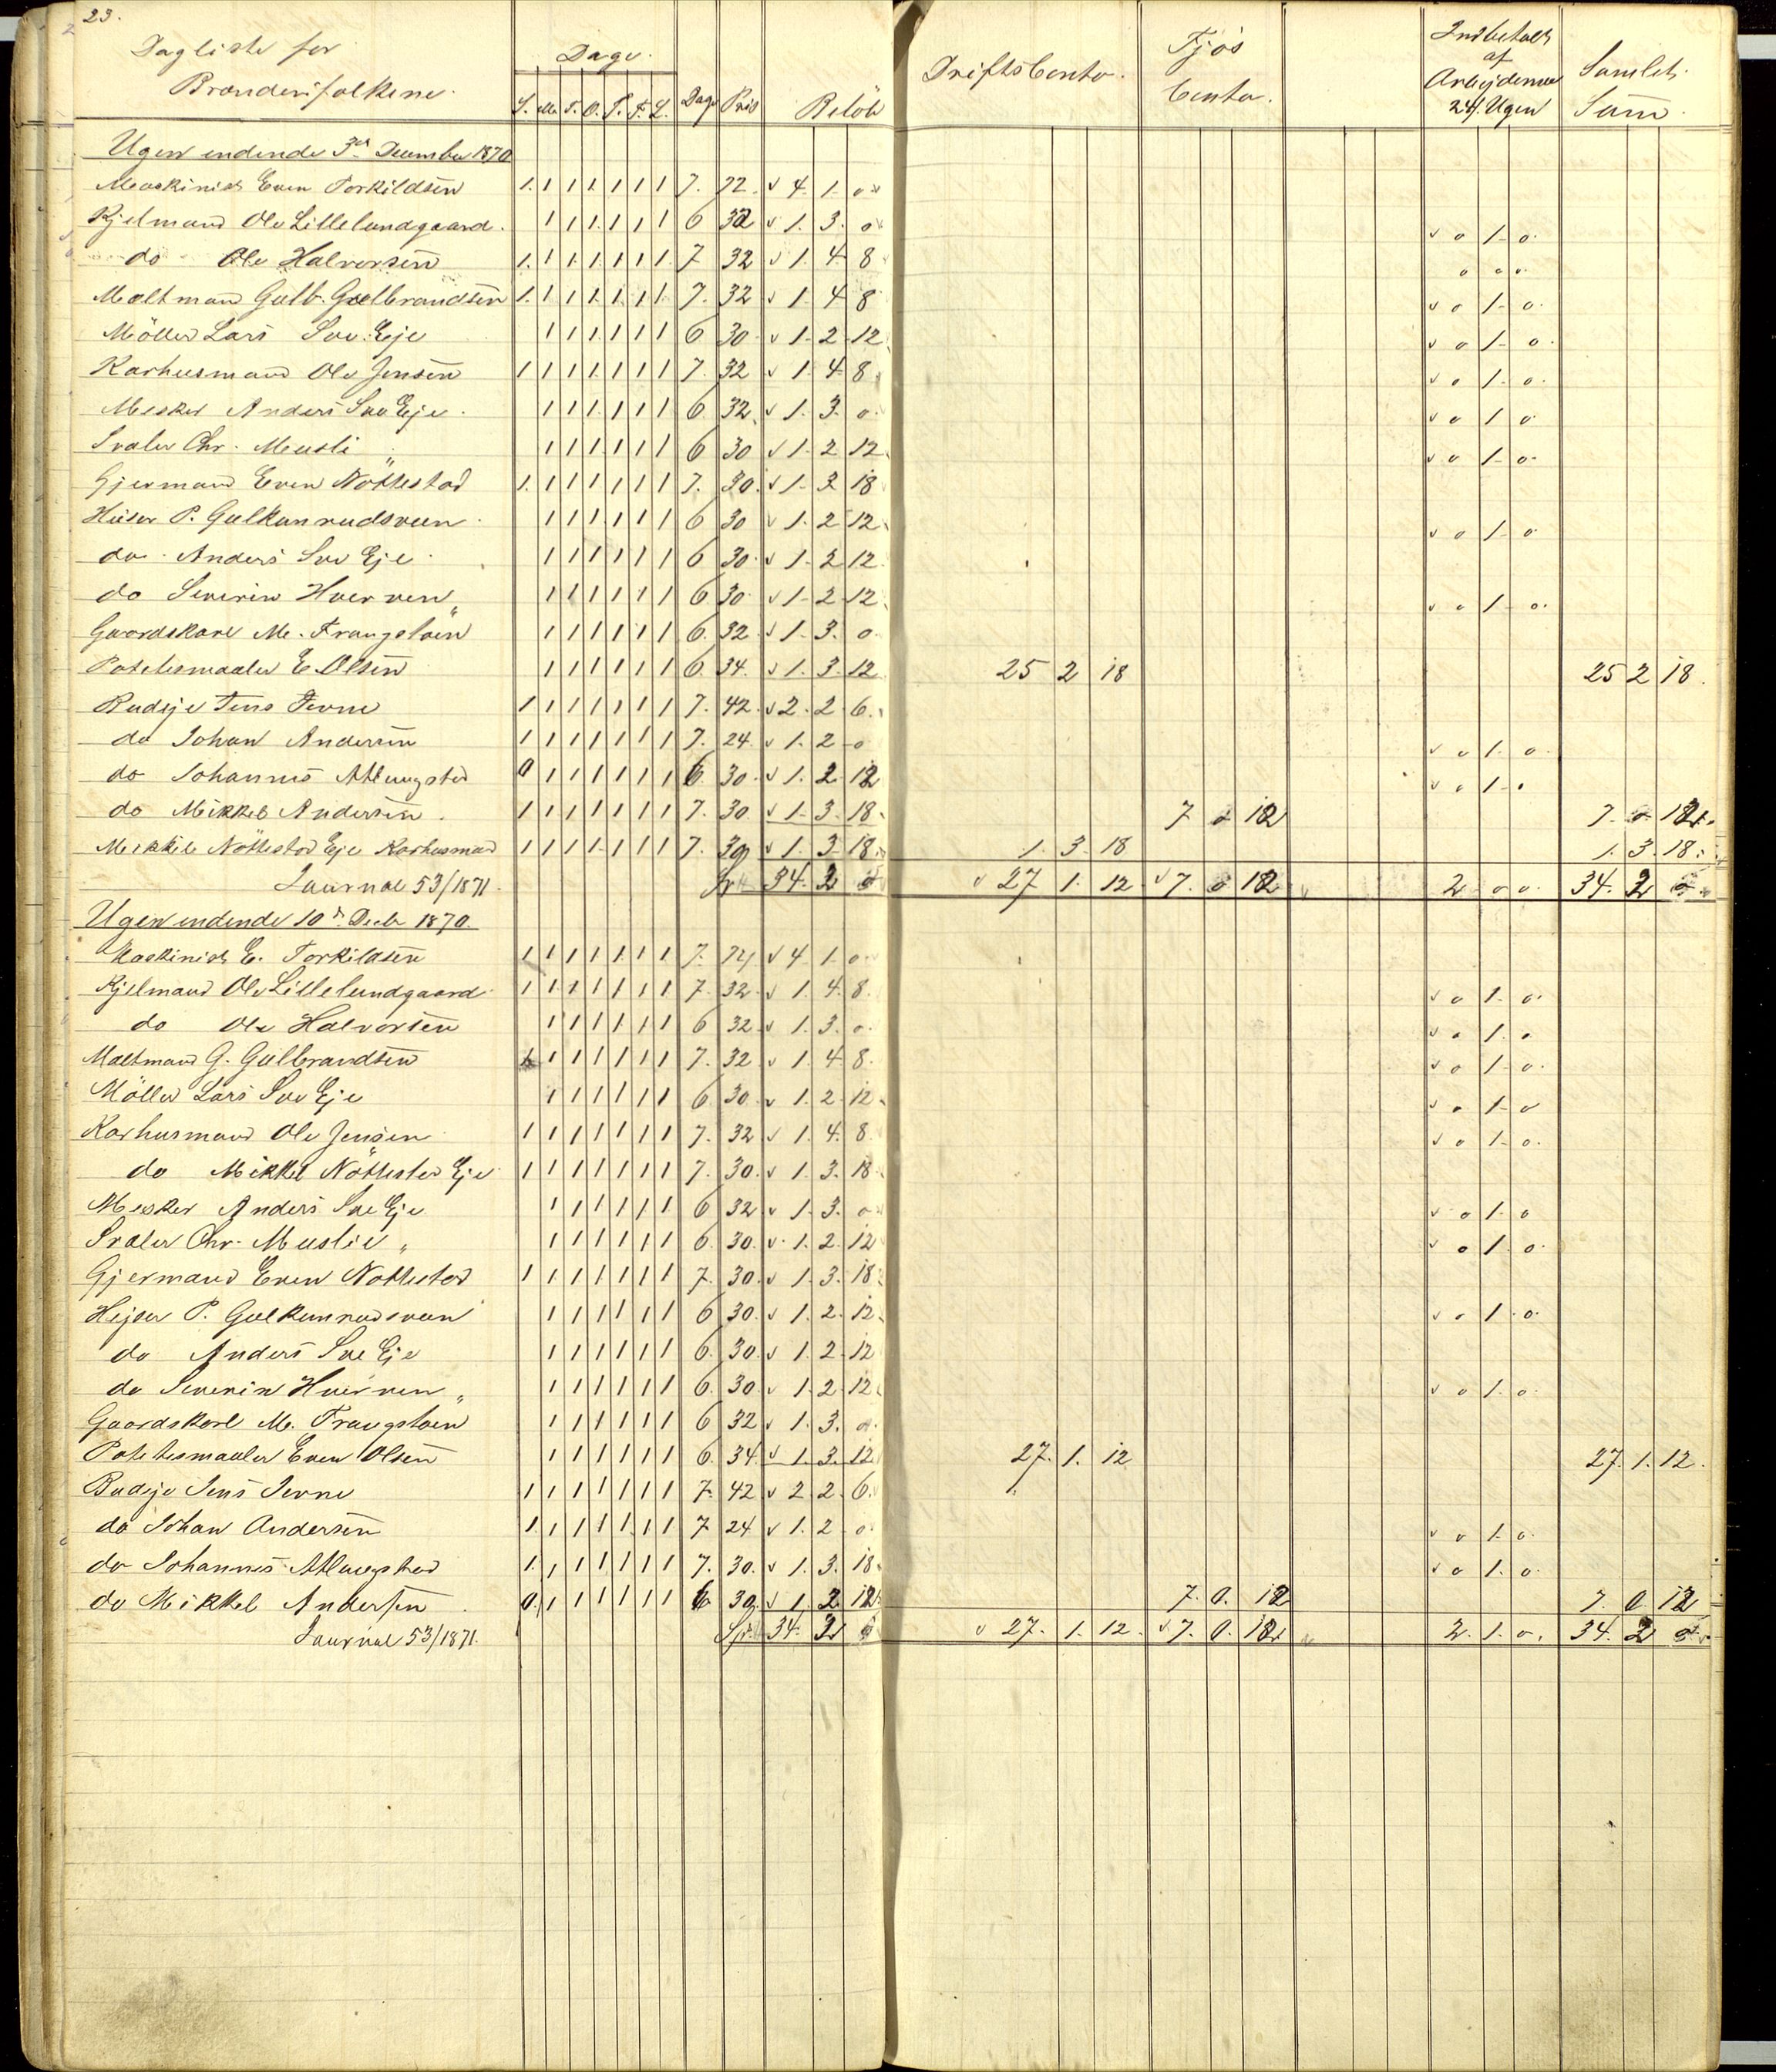 23.
Dagliste for Brænderifolkene. Dage. S. M. T. O. T. F. L. Dage Pris Beløb Drifts Conto. Fjøs Conto. Indbetalt af Arbejderne 24/ Ugen Samlet Sum.
Ugen endende 3de December 1870
Maskinist Even Torkildsen 1. 1 1 1 1 1 1 7. 72 4. 1. 0
Kjelmand Ole Lillelundgaard. 1 1 1 1 1 1 6 32 1. 3. 0 0 1. 0.
do Ole Halvorsen 1. 1 1 1 1 1 1 7 32 1. 4. 8 0 0 0.
Maltmand Gulb. Gulbrandsen 1. 1 1 1 1 1 1 7. 32 1. 4 8 0 1. 0.
Möller Lars Sve Eje 1 1 1 1 1 1 6 30. 1. 2 12 0 1. 0.
Karhusmand Ole Jensen 1 1 1 1 1 1 1 7. 32 1. 4. 8 0 1. 0.
Mesker Anders Sve Eje. 1 1 1 1 1 1 6 32 1. 3. 0. 0 1 0.
Svaler Chr. Meusli " 1 1 1 1 1 1 6 30 1. 2 12 0 1. 0.
Gjermand Even Nöttestad 1. 1 1 1 1 1 1 7. 30. 1. 3 18
Hüser P. Gulkunrudsveen 1 1 1 1 1 1 6 30 1. 2 12 0 1. 0.
do. Anders Sve Eje. 1 1 1 1 1 1 6 30. 1. 2 12
do Severin Hverven " 1 1 1 1 1 1 6 30. 1. 2 12 0 1. 0.
Gaardskarl M. Fraugstoen 1 1 1 1 1 1 6. 32 1. 3. 0.
Potetesmaaler E. Olsen 1 1 1 1 1 1 6. 34. 1. 3. 12 25 2 18 25 2 18.
Budeje Jens Jevne 1 1 1 1 1 1 1 7. 42. 2. 2 6.
do Johan Andersen 1 1 1 1 1 1 1 7. 24. 1. 2 0 0 1. 0.
do Johannes Atlungstad 0 1 1 1 1 1 1 6. 30. 1. 2 12 0 1. 0
do Mikkel Andersen. 1 1 1 1 1 1 1 7. 30 1. 3. 18. 7 0 12 7. 0. 12.
Mikkel Nöttestad Eje Karhusmand 1 1 1 1 1 1 1 7. 30 1. 3. 18. 1. 3. 18 1. 3. 18.
Journal 53/1871. 34. 2 0 27 1. 12 7. 0 12 2. 0 0. 34. 2 0
Ugen endende 10de Decbr 1870.
Maskinist E. Torkildsen 1 1 1 1 1 1 1 7. 72 4 1. 0
Kjelmand Ole Lillelundgaard 1 1 1 1 1 1 1 7. 32 1. 4. 8. 0 1. 0.
do Ole Halvorsen 1 1 1 1 1 1 6 32 1. 3. 0. 0 1. 0
Maltmand G. Gulbrandsen 1 1 1 1 1 1 1 7. 32 1. 4 8. 0 1. 0.
Möller Lars Sve Eje 1 1 1 1 1 1 6 30. 1. 2 12. 0 1. 0
Karhusmand Ole Jensen 1 1 1 1 1 1 1 7. 32 1. 4. 8. 0 1. 0.
do Mikkel Nöttestad Eje 1 1 1 1 1 1 1 7. 30. 1. 3. 18
Mesker Anders Sve Eje 1 1 1 1 1 1 6 32 1. 3. 0 0 1. 0
Svaler Chr. Muslie " 1 1 1 1 1 1 6. 30. 1. 2. 12 0 1. 0.
Gjermand Even Nöttestad 1 1 1 1 1 1 1 7. 30. 1. 3. 18
Hejser P. Gulkunrudsveen 1 1 1 1 1 1 6 30. 1. 2. 12. 0 1. 0.
do Anders Sve Eje 1 1 1 1 1 1 6. 30. 1. 2 12
do Severin Hverven " 1 1 1 1 1 1 6. 30. 1. 2. 12 0 1. 0.
Gaardskarl M. Fraugstoen 1 1 1 1 1 1 6 32 1. 3. 0.
Potetesmaaler Even Olsen 1 1 1 1 1 1 6. 34. 1. 3. 12 27. 1. 12 27. 1. 12.
Budeje Jens Jevne 1 1 1 1 1 1 1 7. 42 2 2. 6.
do Johan Andersen 1. 1 1 1 1 1 1 7 24 1. 2 0. 0 1. 0.
do Johannes Atlungstad 1. 1 1 1 1 1 1 7. 30. 1. 3. 18 0 1. 0.
do Mikkel Andersen 0. 1 1 1 1 1 1 6 30. 1. 2 12 7. 0. 12 7. 0 12
Journal 53/1871. 34. 2 0 27. 1. 12. 7. 0. 12 2. 1. 0. 34. 2 0